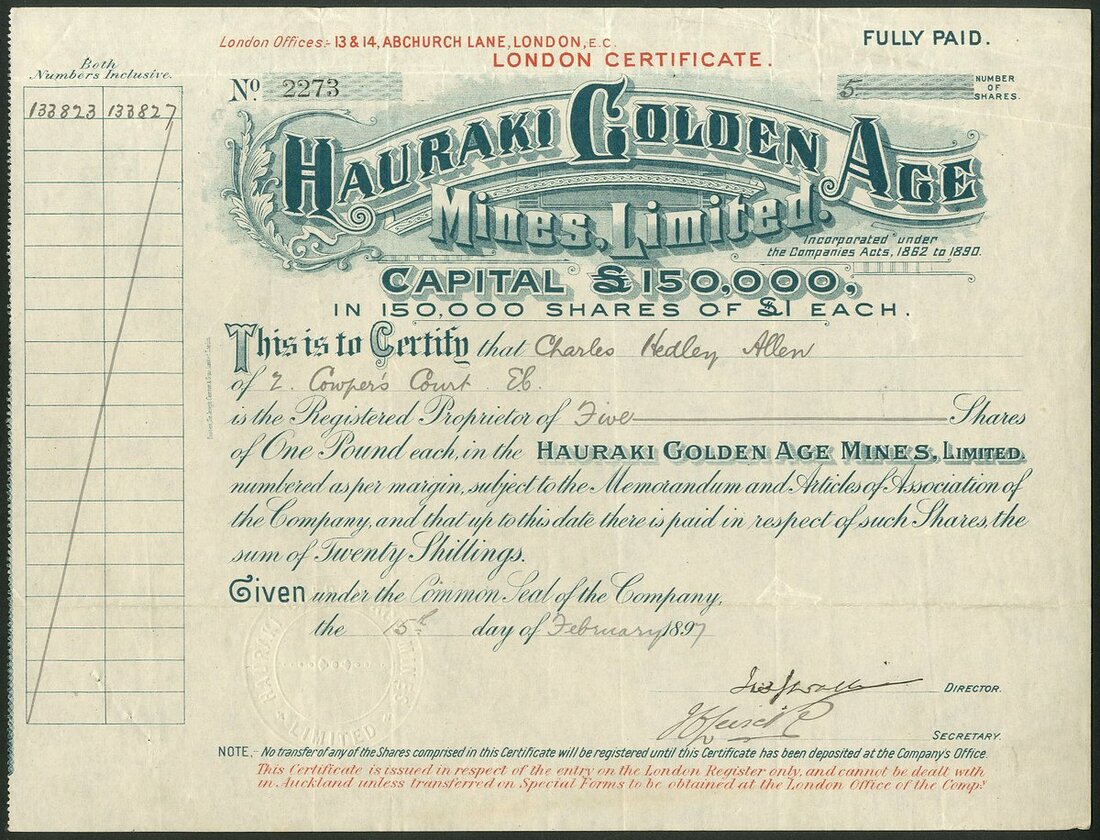 London Offices:- 13 & 14, ABCHURCH LANE, LONDON, E.C.
FULLY PAID.
LONDON CERTIFICATE.
Both
Numbers Inclusive.
No. 2273
5
NUMBER
OF
SHARES.
133823 133827
HAURAKI GOLDEN AGE
Mines, Limited.
Incorporated under
the Companies Acts, 1862 to 1890.
CAPITAL £150,000,
IN 150,000 SHARES OF £1 EACH.
This is to Certify that Charles Hedley Allen
of 2. Cowper's Court EC.
is the Registered Proprietor of Five Shares
of One Pound each, in the HAURAKI GOLDEN AGE MINES, LIMITED.
numbered as per margin, subject to the Memorandum and Articles of Association of
the Company, and that up to this date there is paid in respect of such Shares, the
sum of Twenty Shillings.
Given under the Common Seal of the Company,
the 15th day of February 1897
HAURAKI MINES
LIMITED
DIRECTOR.
SECRETARY.
NOTE.- No transfer of any of the Shares comprised in this Certificate will be registered until this Certificate has been deposited at the Company's Office.
This Certificate is issued in respect of the entry on the London Register only, and cannot be dealt with
in Auckland unless transferred on Special Forms to be obtained at the London Office of the Compy.